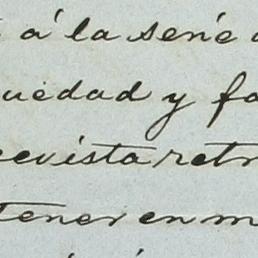 á la serie
uedad y fa
revista retr
tener en m